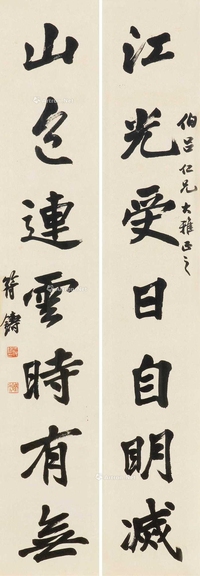 江光受日自明滅
伯吕仁兄大雅正之
山色連雲時有無
符鑄